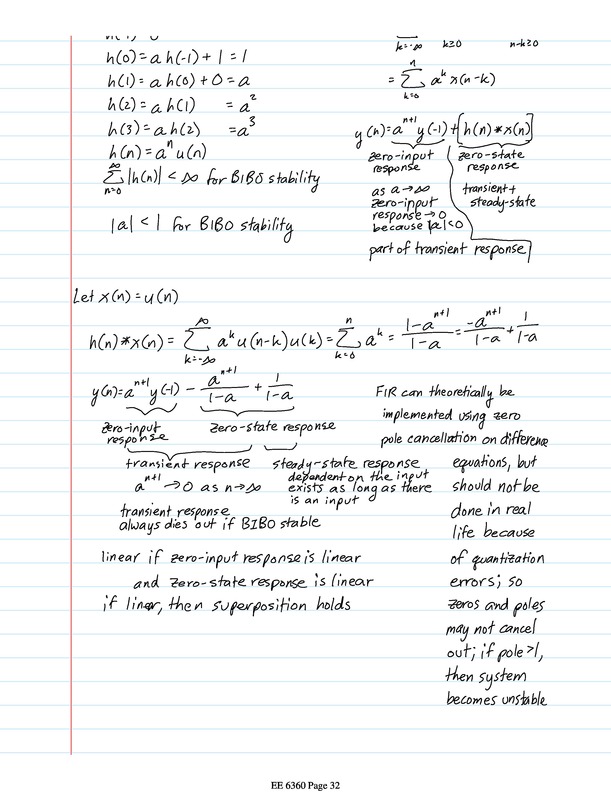 h(0) = a h(-1) + 1 = 1
h(1) = a h(0) + 0 = a
h(2) = a h(1) = a²
h(3) = a h(2) = a³
h(n) = aⁿ u(n)
∞ Σ n=0 |h(n)| < ∞ for BIBO stability
|a| < 1 for BIBO stability
k=-∞ k≥0 n-k≥0
= n Σ k=0 aᵏ x(n-k)
y(n) = aⁿ⁺¹ y(-1) + [h(n) * x(n)]
zero-input response
zero-state response
as a→∞
zero-input
response → 0
because |a|<0
transient +
steady-state
part of transient response
Let x(n) = u(n)
h(n) * x(n) = ∞ Σ k=-∞ aᵏ u(n-k) u(k) = n Σ k=0 aᵏ = (1-aⁿ⁺¹)/(1-a) = -aⁿ⁺¹/(1-a) + 1/(1-a)
y(n) = aⁿ⁺¹ y(-1) - aⁿ⁺¹/(1-a) + 1/(1-a)
zero-input response
zero-state response
transient response
aⁿ⁺¹ → 0 as n→∞
transient response
always dies out if BIBO stable
steady-state response
dependent on the input
exists as long as there
is an input
linear if zero-input response is linear
and zero-state response is linear
if linear, then superposition holds
FIR can theoretically be
implemented using zero
pole cancellation on difference
equations, but
should not be
done in real
life because
of quantization
errors; so
zeros and poles
may not cancel
out; if pole >1,
then system
becomes unstable
EE 6360 Page 32